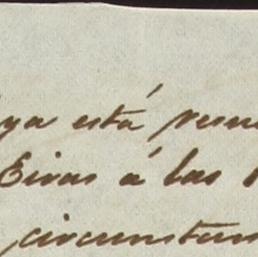 ya está
Eivas á las
circunstan